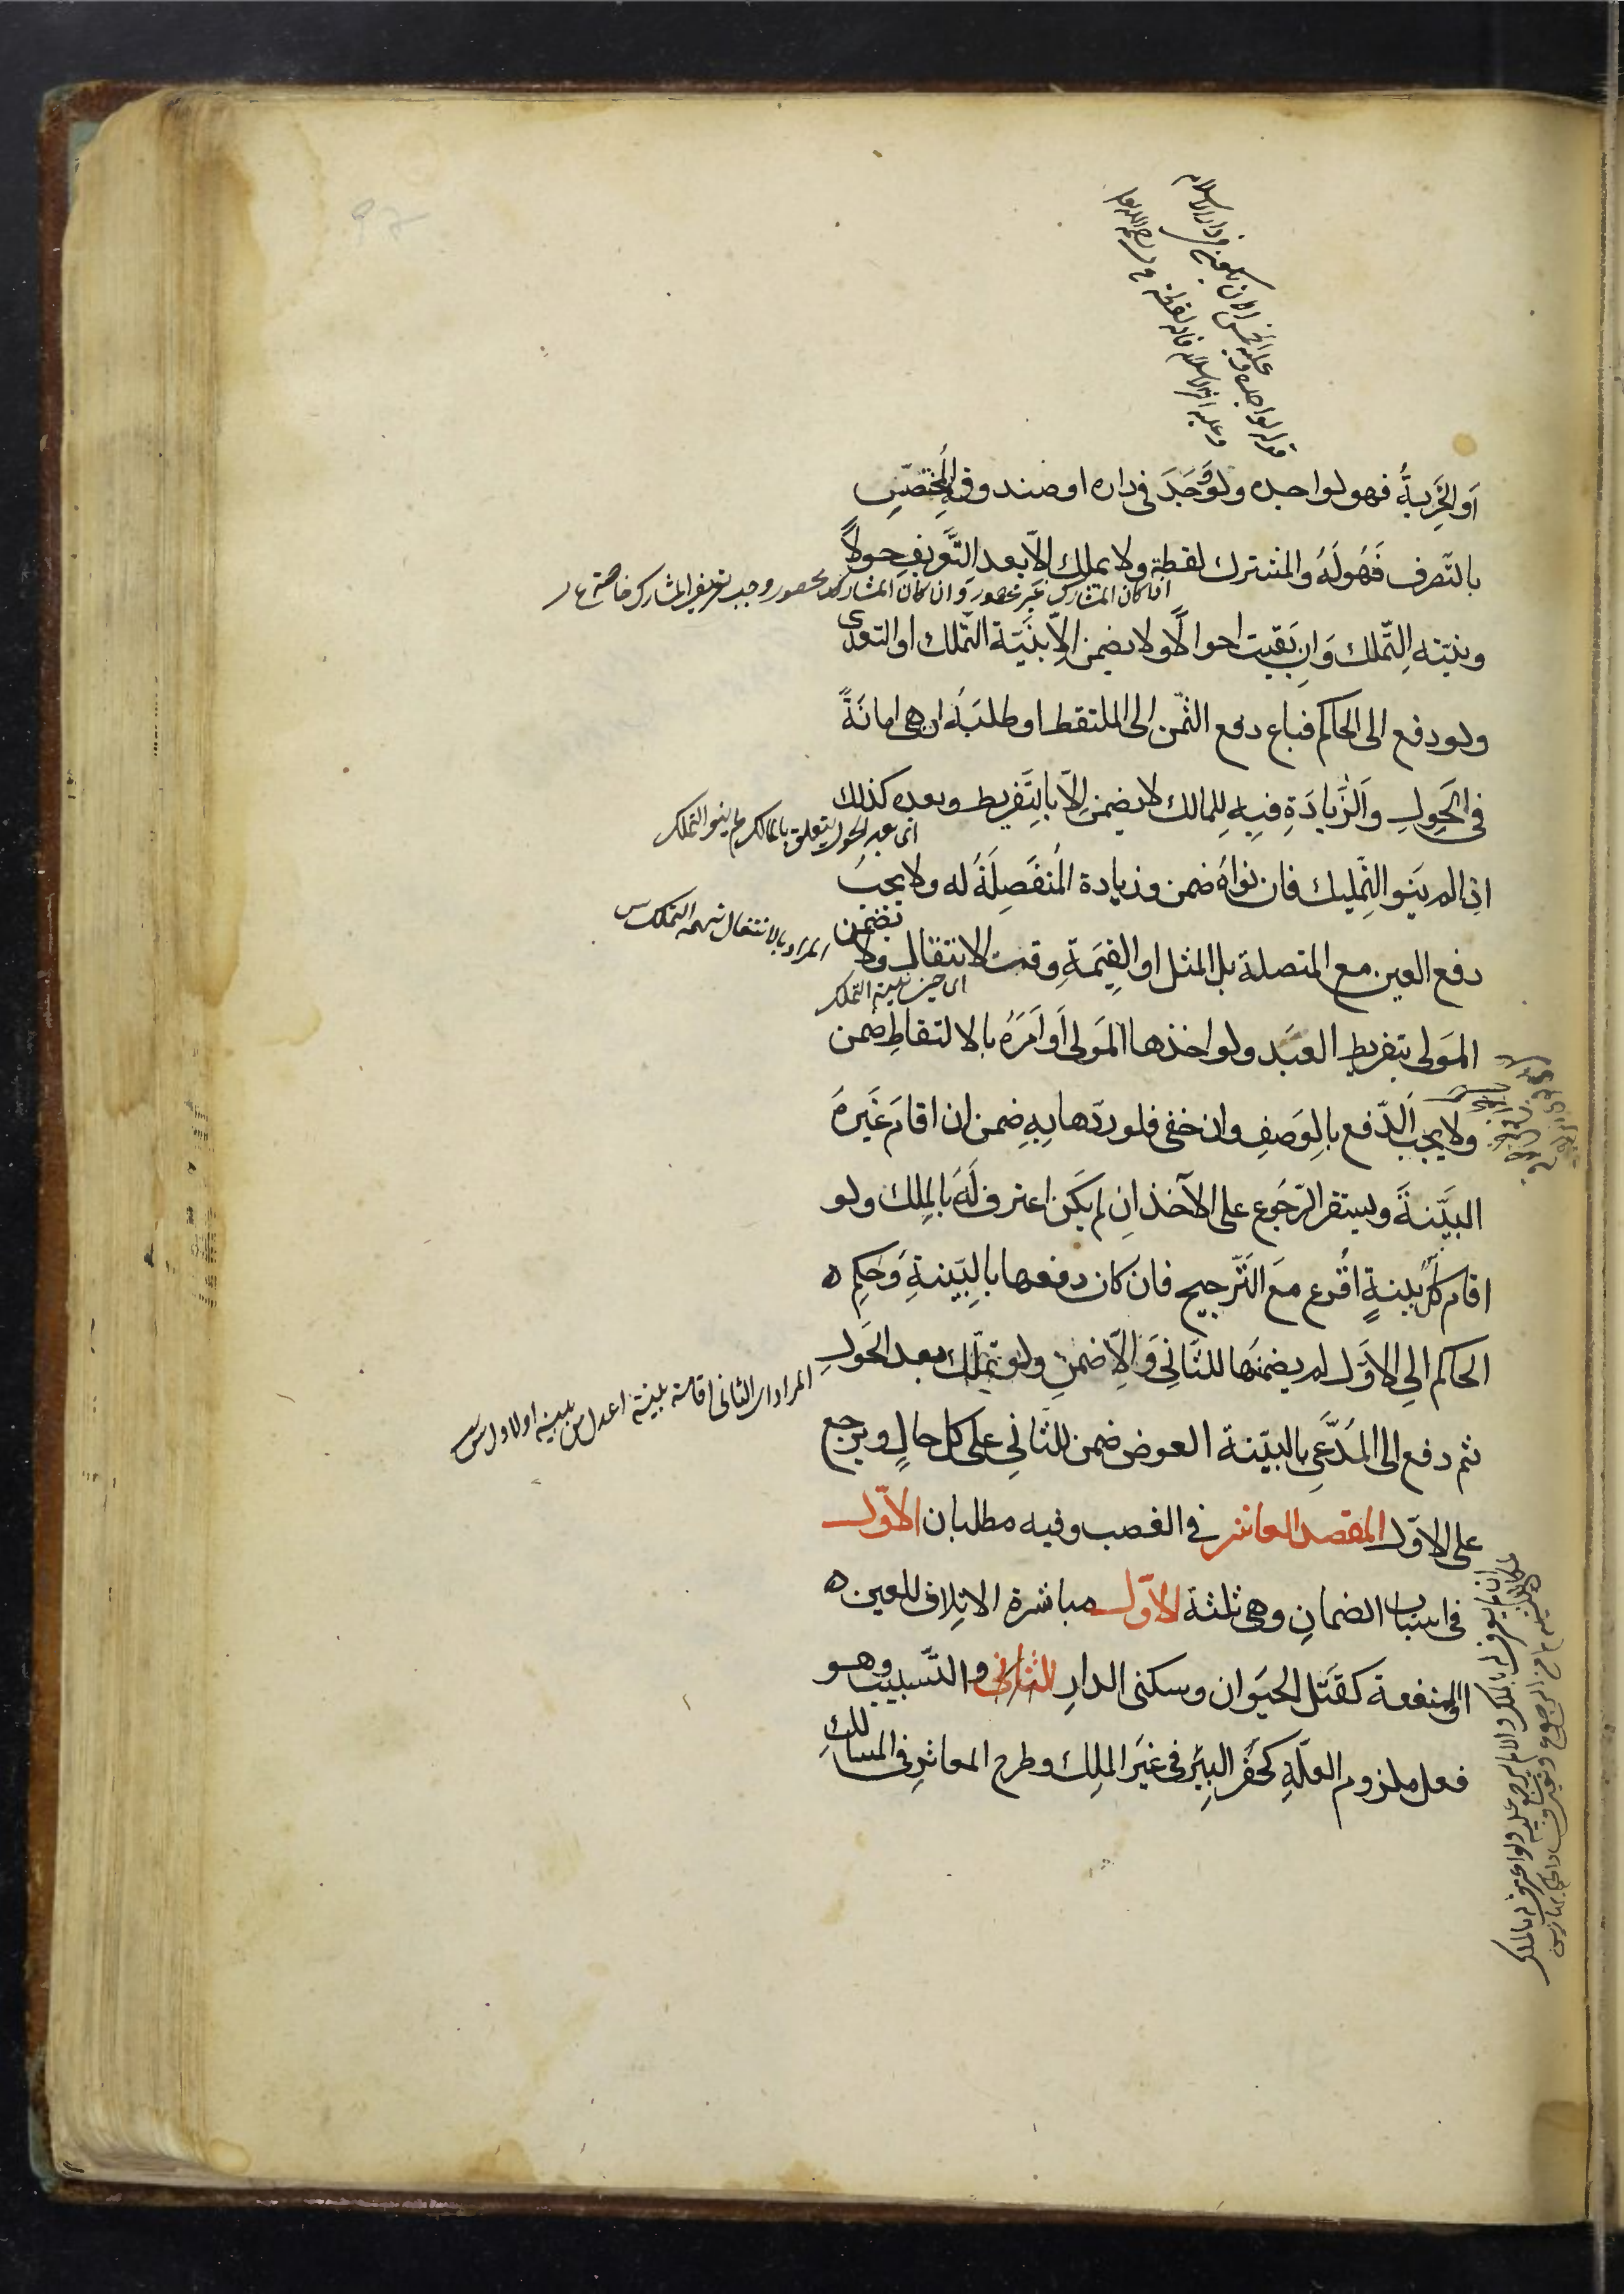 اَوالخَرِبةُ فهو لواجده ولو وَجَدَ فى داره او صندوقه المُختصّين
بالتّصرف فَهُولَهُ والمشترك لقطة ولا يملك الّا بعد التَّعريف حولاً
ان كان المشارك غير محصور وان كان المشارك محصور وجب تعريف المشارك خاصة
ونيّته التّملك وَاِن بَقيت احوالًا ولا يضمن اِلّا بنيّة التّملك او التعدى
ولو دفع الى الحاكم فباع دفع الثّمن الى الملتقط او طلبَهُ اذ هى امانَةً
فى الحَولِ والزَّيادَةِ فيهِ لِلمالك لا يضمن اِلّا بالتَّفريط وبعده كذلك
اى بعد الحول يتعلق بالمالك لم ينو التملك
اذا لم يَنوِ التّمليك فان نواهُ ضمن وزيادة المُنفَصِلَةُ له ولا يجبُ
دفع العين مع المتصلة بل المثل او القِيمَةِ وقت الانتقال ولا يضمن
المراد بالانتقال نية التملك
اى حين نية التملك
المَولى بتفريط العبَد ولو اخذها المَولى اَو اَمَرَهُ بالالتقاطِ ضمن
ولا يجب الدّفع بالوَصفِ وان خفى فلو ردّها بِهِ ضمن ان اقامَ غَيرهُ
البيّنةَ ويستقر الرّجوع على الآخذ ان لم يكن اعترف لَهُ بالمِلك ولو
اقام كلٌّ بينةٍ اقُرع مَعَ التّرجيح فان كان دفعها بالبيّنةِ وَحكِم
الحاكم الى الاَوّل لم يضمنها للثّانى وَالّا ضمن ولو تملّك بعد الحَول
المراد ان الثانى اقامة بينة اعدل من بينة الاول
ثم دفع الى المُدّعى بالبيّنة العوض ضمن للثّانى على كل حالٍ ويرجع
على الاوّل المقصد العاشر فى الغصب وفيه مطلبان الاَوّل
فى اسباب الضمان وهى ثلثة الاَوّل مباشرة الاتلاف للعين
او المنفعة كقَتل الحيَوان وسكنى الدارِ الثانى والتّسبيب وهو
فعل ملزوم العلّةِ كحَفر البيَر فى غيَر المِلك وطرح المعاثر فى المسالك